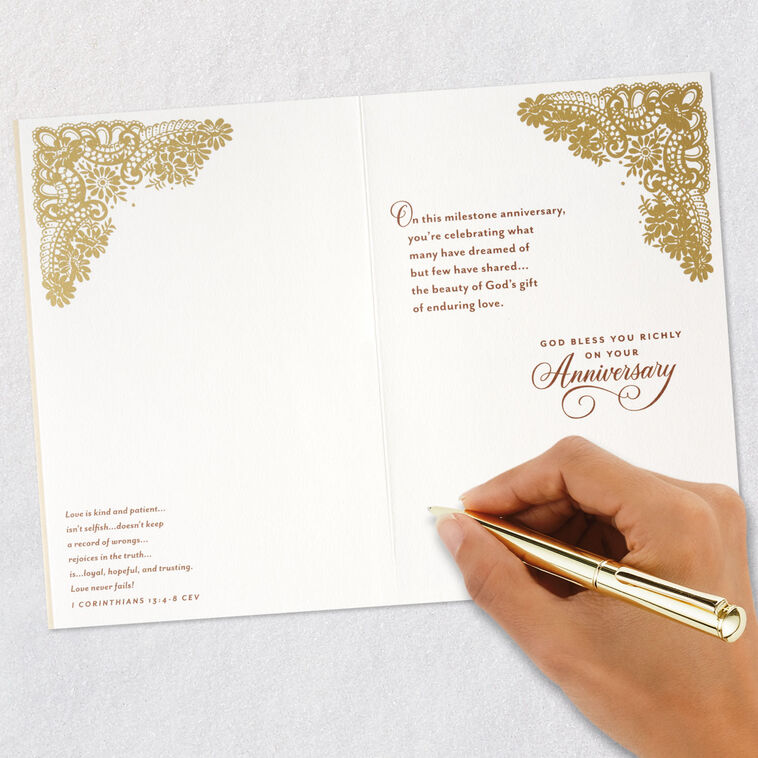 Love is kind and patient...
isn't selfish...doesn't keep
a record of wrongs...
rejoices in the truth...
is...loyal, hopeful, and trusting.
Love never fails!
1 CORINTHIANS 13:4-8 CEV
On this milestone anniversary,
you're celebrating what
many have dreamed of
but few have shared...
the beauty of God's gift
of enduring love.
GOD BLESS YOU RICHLY
ON YOUR
Anniversary